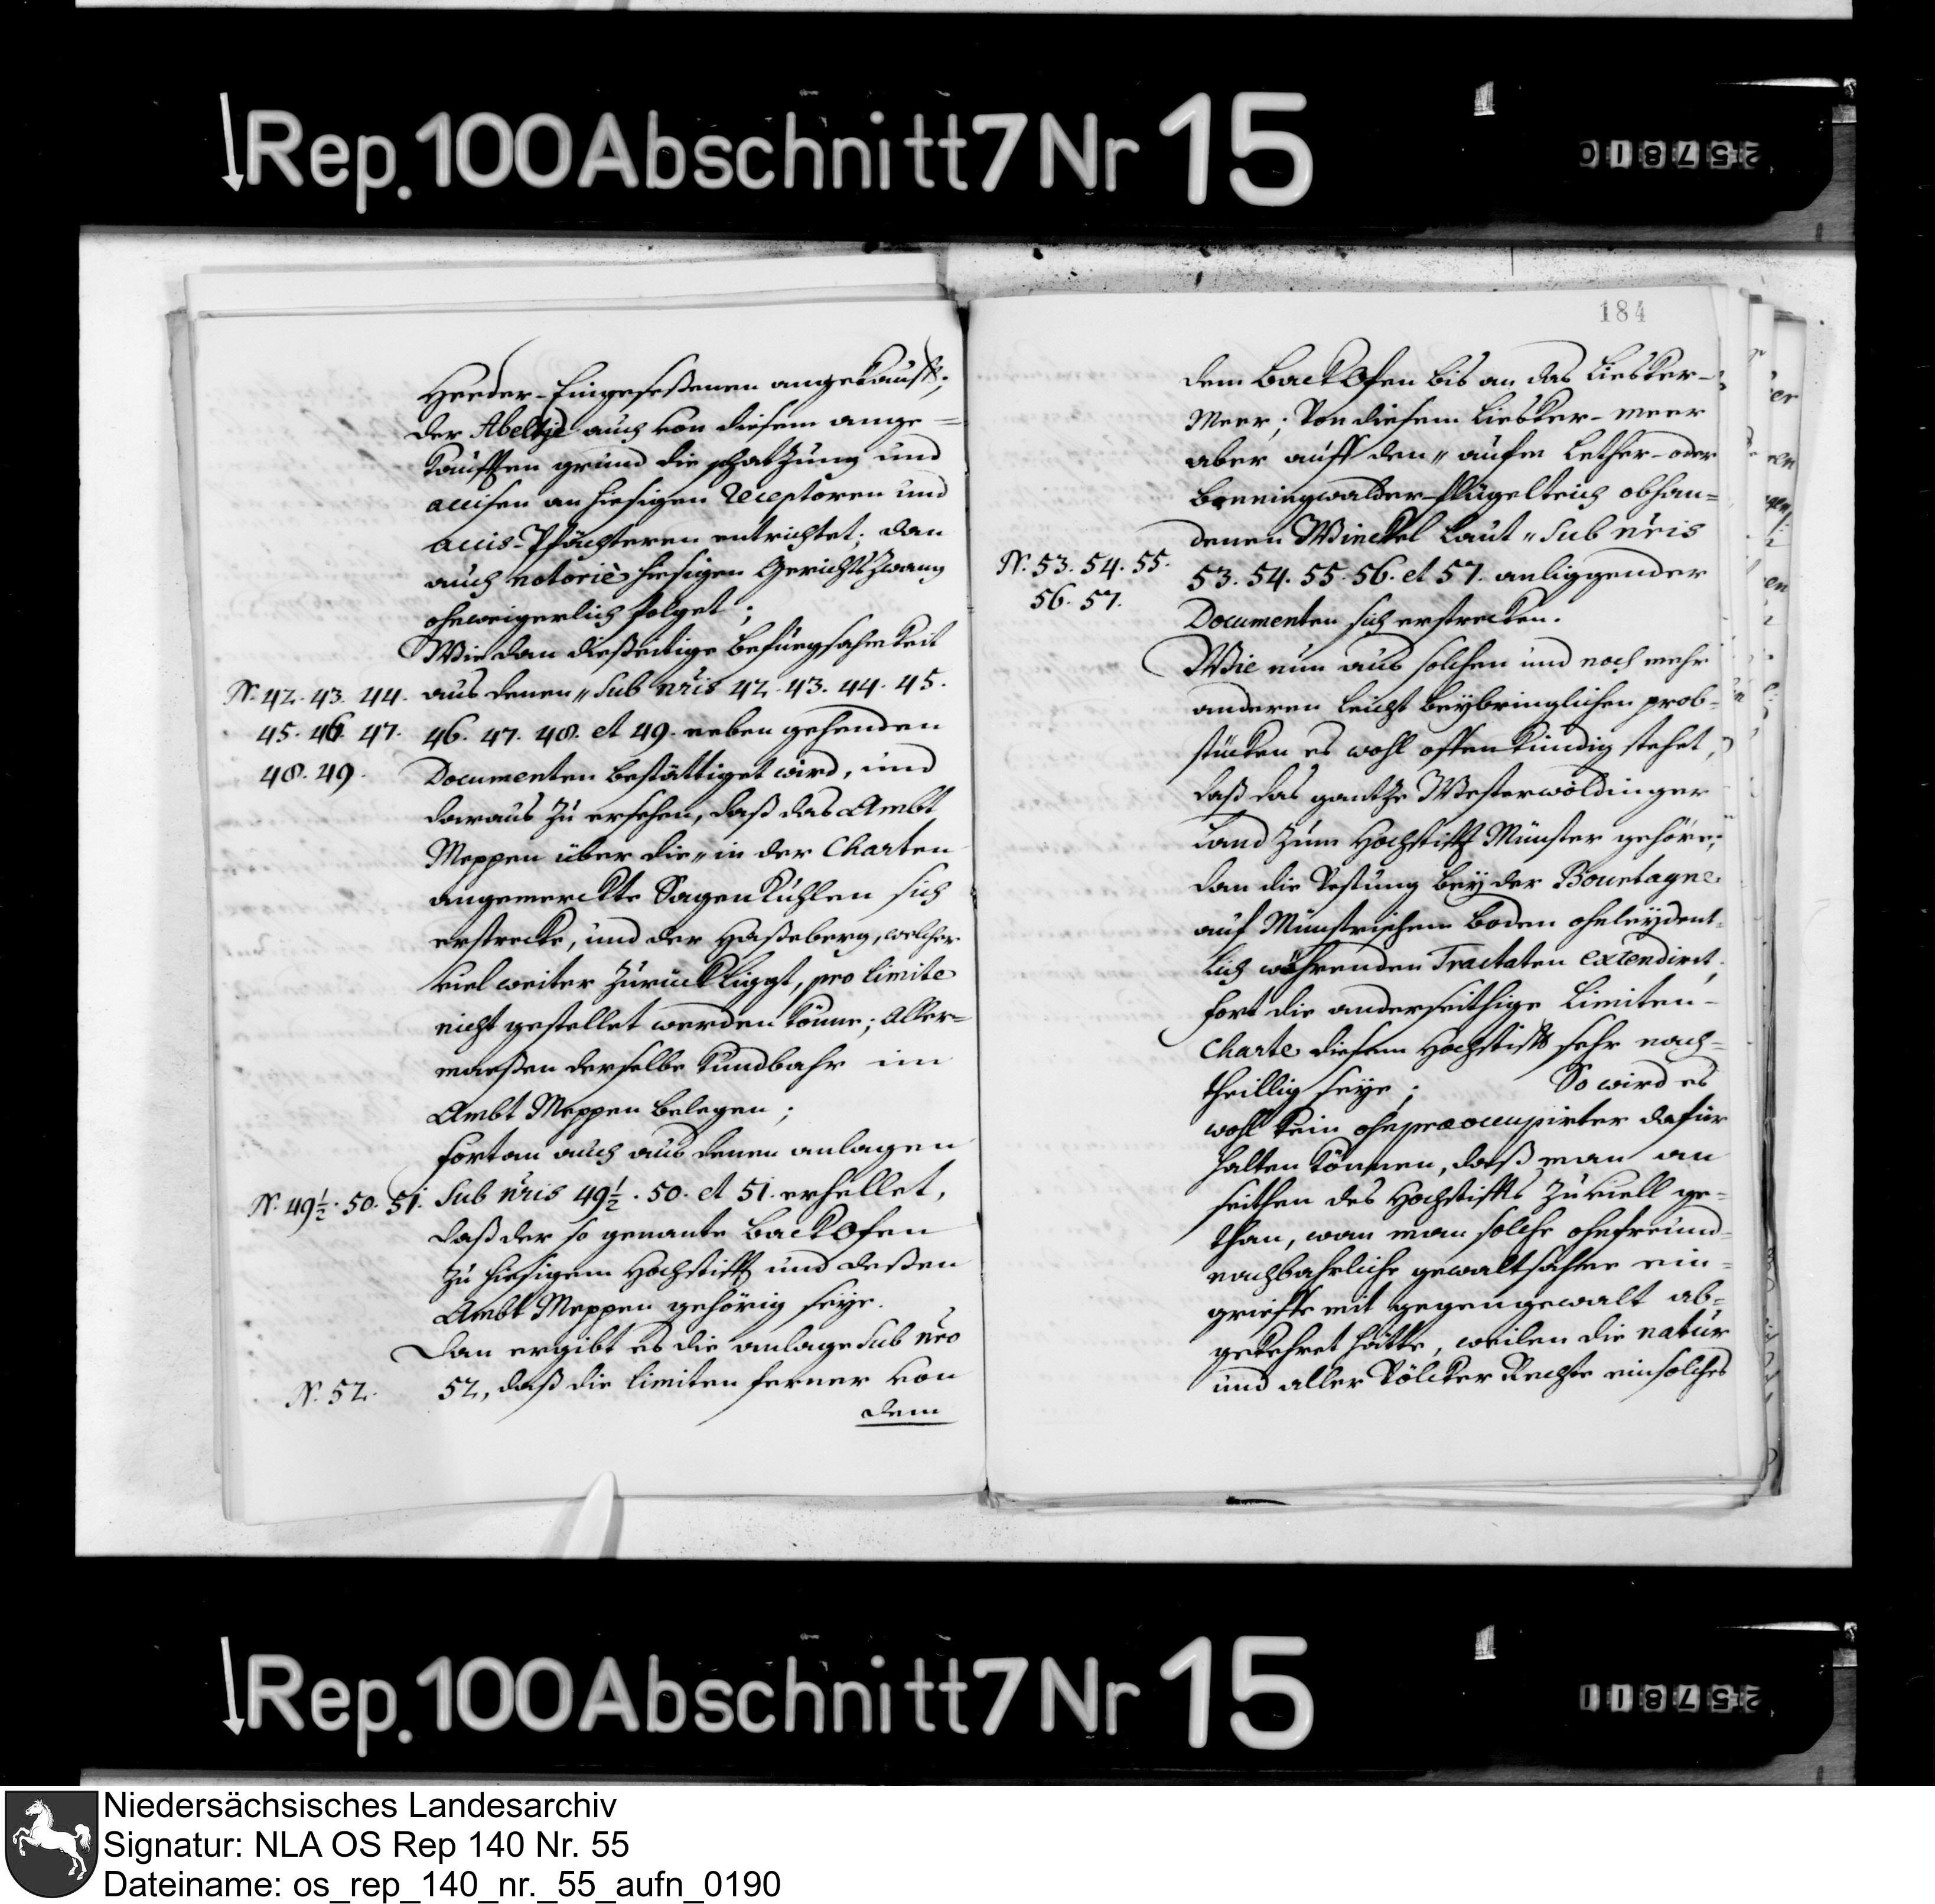 Rep. 100 Abschnitt 7 Nr 15
1
257810
Heeder-Eingeseßenen angekaufft;
der Abeltje auch von diesem ange=
kaufften grund die schatzung und
accisen an hiesigen Receptoren und
accis-Pfächteren entrichtet; dan
auch notoriè hiesigen Gerichts Zwang
ohnweigerlich folget;
Wie dan dießeitige befuegsahmkeit
N. 42. 43. 44. aus denen „ sub nris 42. 43. 44. 45.
45. 46. 47. 46. 47. 48. et 49. neben gehenden
48. 49. Documenten bestättiget wird, und
daraus zu ersehen, daß das Ambt
Meppen über die „ in der Charten
angemerckte Sagen Kuhlen sich
erstrecke, und der Haßeberg, welcher
viel weiter zurück ligget, pro limite
nicht gestellet werden könne; Aller=
maeßen derselbe kundbahr im
Ambt Meppen belegen;
fortan auch aus denen anlagen
N. 49½. 50. 51. sub nris 49½. 50. et 51. erhellet,
daß der so genante backOfen
zu hiesigem Hochstifft und deßen
Ambt Meppen gehörig seye.
Dan ergibt es die anlage sub nro
N. 52. 52, daß die limiten ferner von
dem
184
dem backOfen bis an das Liebker-
Meer; Von diesem Liebker-meer
aber auff den „ aufm Lether- oder
bonningwalder-flügelteich obhan=
denen Winckel laut „ sub nris
N. 53. 54. 55. 53. 54. 55. 56. et 57. anliggender
56. 57. Documenten sich erstrecken.
Wie nun aus solchen und noch mehr
anderen leicht beybringlichen prob=
stücken es wohl offenkündig stehet,
daß das gantze Westerwöldinger
Land zum Hochstifft Münster gehöre;
dan die Vestung bey der Bourtagne
auf Münstrischem boden ohnleydent=
lich währenden Tractaten extendiret,
fort die anderseithige Limiten-
Charte diesem Hochstifft sehr nach=
theillig seye; So wird es
wohl kein ohnpraeoccupirter dafür
halten können, daß man an
seithen des Hochstiffts zu viell ge=
than, wan man solche ohnfreund=
nachbahrliche gewaltsahme ein=
grieffe mit gegengewalt ab=
gekehret hätte, weilen die natur
und aller Völcker Rechte ein solches
Rep. 100 Abschnitt 7 Nr 15
1
257811
Niedersächsisches Landesarchiv
Signatur: NLA OS Rep 140 Nr. 55
Dateiname: os_rep_140_nr._55_aufn_0190